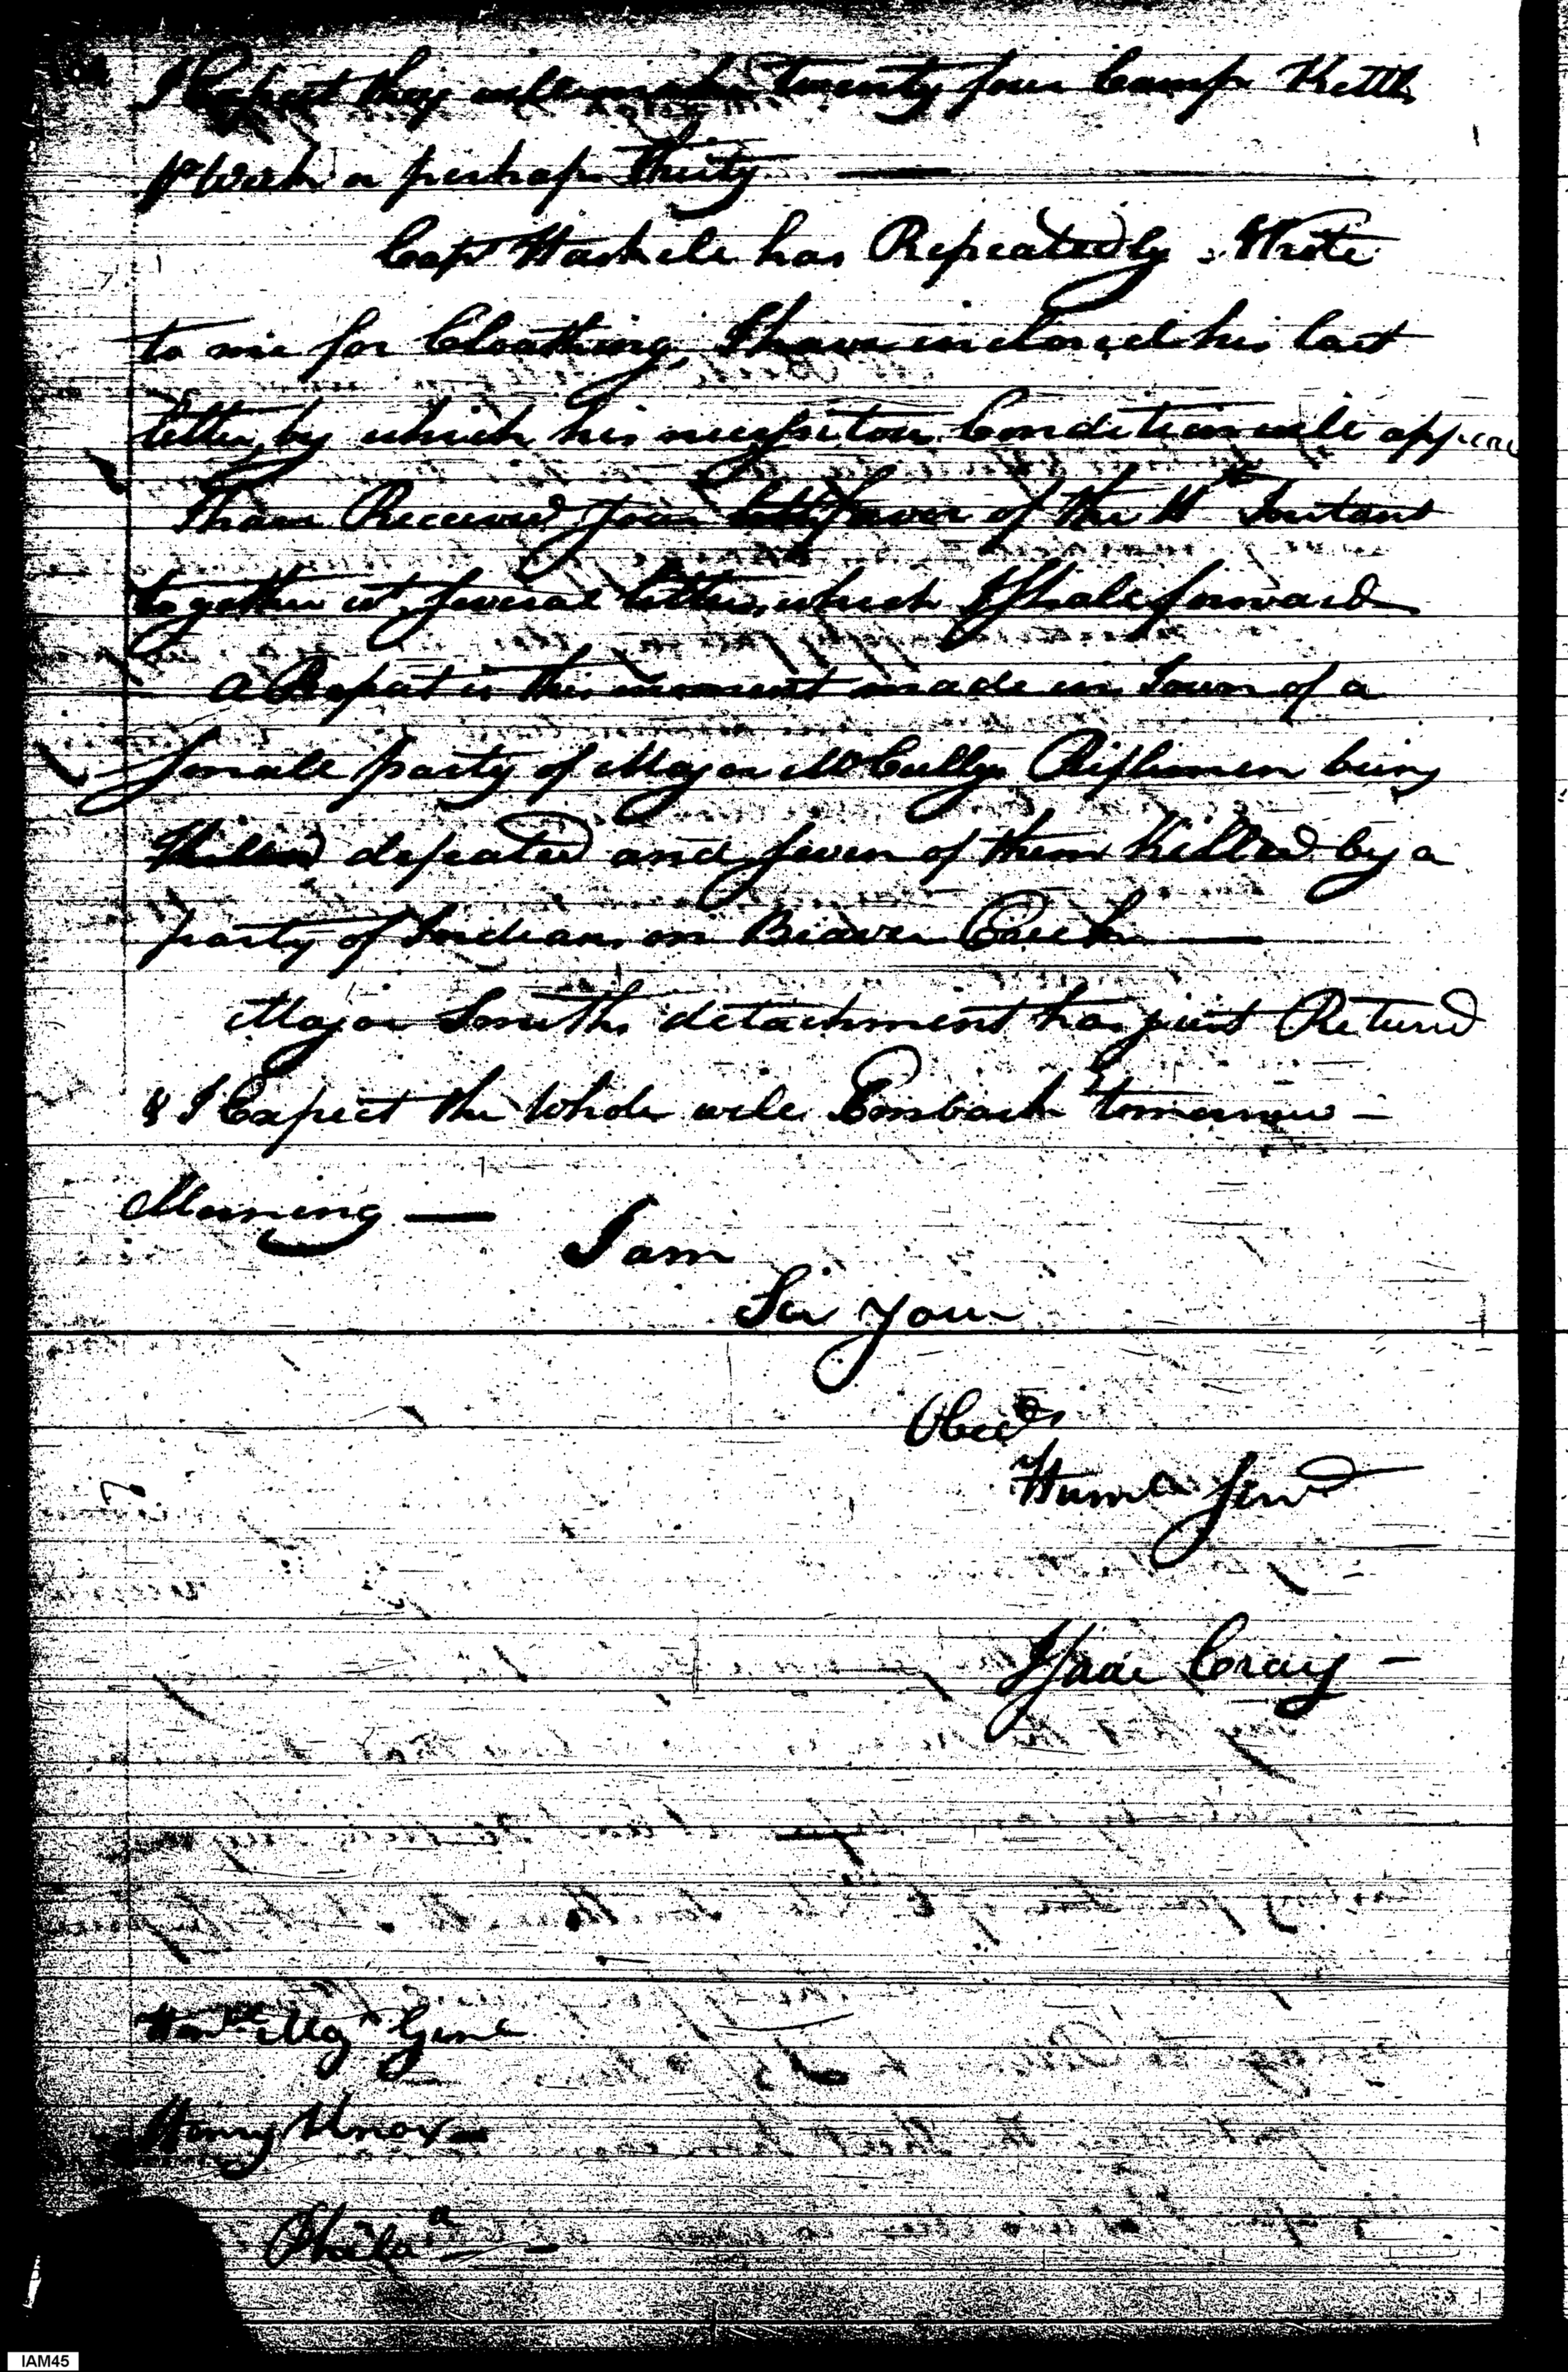 I Expect they will make twenty four Camp Kettle
pr Week or perhaps Thirty —
Capt Haskell has Repeatedly Wrote
to me for Cloathing, I have inclosed his last
letter, by which his necessitous Condition will appear
I have Received your favor of the Instant
together wt several letters, which I shall forward
a Report is this moment made in Town of a
small party of Major McCullys Riflemen being
defeated and seven of them Killed by a
party of Indians on Beaver Creek —
Major Smiths detachment has just Returd
& I Expect the Whole will Embark tomorrow —
Morning —
I am
Sir your
Obedt
Humle Servt
Isaac Craig —
Honble Majr Genl
Henry Knox —
Philaa —
IAM45